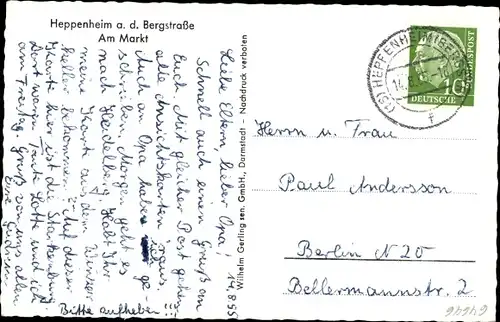 Heppenheim a. d. Bergstraße
Am Markt
14.8.55
Liebe Eltern, lieber Opa!
Schnell auch einen Gruß an
Euch. Mit gleicher Post gehen
alle Ansichtskarten raus,
Auch an Opa habe ge-
schrieben. Morgen geht es
nach Heidelberg. Habt Ihr
meine Karte aus dem Winzer
keller bekommen? Auf dieser
Karte hier ist die Starkenburg
Dort waren Tante Lotte und ich
am Freitag. Gruß von uns allen
Eure Gudrun
Bitte aufheben!!!
Wilhelm Gerling sen. GmbH., Darmstadt - Nachdruck verboten
HEPPENHEIM (BERGSTR)
DEUTSCHE
BUNDESPOST
10
Herrn u. Frau
Paul Andersson
Berlin N 20
Bellermannstr. 2